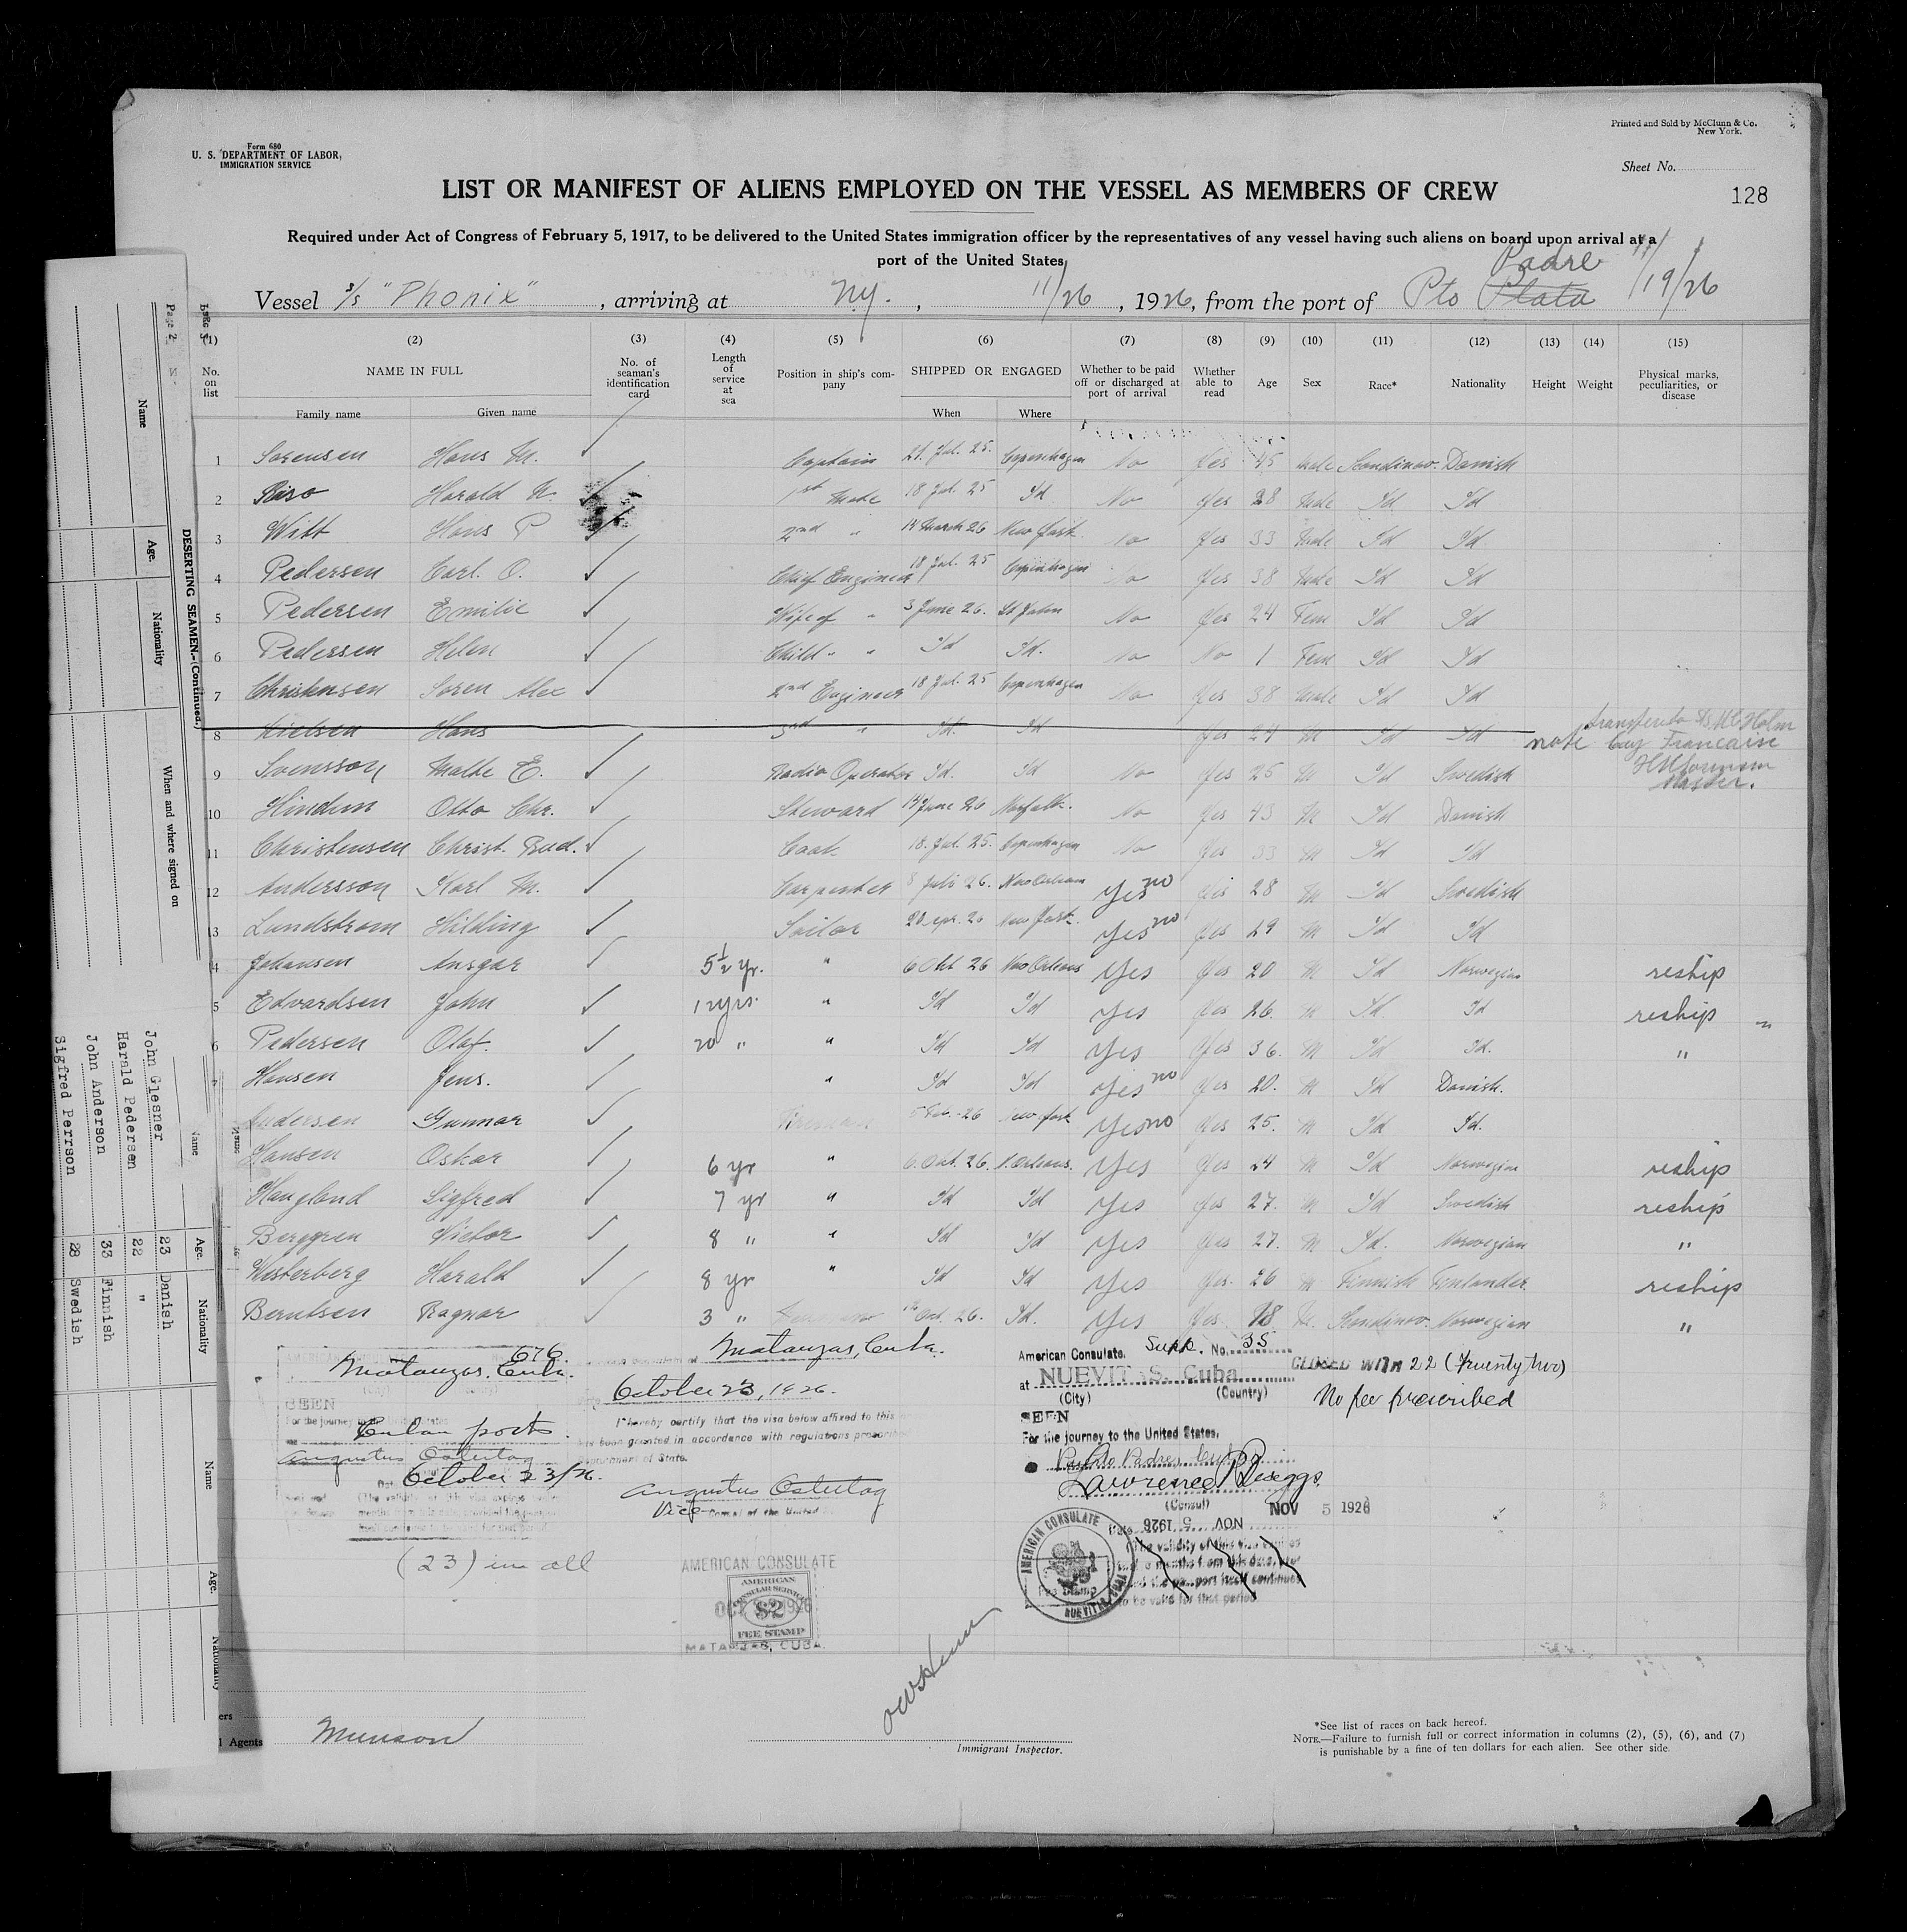 Form 680
U. S. DEPARTMENT OF LABOR,
IMMIGRATION SERVICE
Printed and Sold by McClunn & Co.
New York.
Sheet No.
128
LIST OR MANIFEST OF ALIENS EMPLOYED ON THE VESSEL AS MEMBERS OF CREW
Required under Act of Congress of February 5, 1917, to be delivered to the United States immigration officer by the representatives of any vessel having such aliens on board upon arrival at a
port of the United States
Padre
Vessel S/S "Phonix", arriving at N.Y., 11/26, 1926, from the port of Pto Plata 11/19/26
(1) (2) (3) (4) (5) (6) (7) (8) (9) (10) (11) (12) (13) (14) (15)
No. on list
NAME IN FULL
Family name Given name
No. of seaman's identification card
Length of service at sea
Position in ship's company
SHIPPED OR ENGAGED
When Where
Whether to be paid off or discharged at port of arrival
Whether able to read
Age
Sex
Race*
Nationality
Height
Weight
Physical marks, peculiarities, or disease
1 Sorensen Hans M. Captain 21. Jul. 25. Copenhagen No Yes 45 Male Scandinav. Danish
2 Riso Harald N. 1st Mate 18 Jul. 25 Id No Yes 28 Male Id Id
3 Witt Hans P 2nd " 14 March 26 New York No Yes 33 Male Id Id
4 Pedersen Carl. O. Chief Engineer 18 Jul. 25 Copenhagen No Yes 38 Male Id Id
5 Pedersen Emilie Wife of " 3 June 26. St John No Yes 24 Fem Id Id
6 Pedersen Helen Child " " Id Id. No No 1 Fem Id Id
7 Christensen Soren Alex 2nd Engineer 18 Jul. 25 Copenhagen No Yes 38 Male Id Id
8 Nielsen Hans 3rd " Id. Id Yes 24 M Id Id note
Cay Francaise
Master.
9 Svensson Malte E. Radio Operator Id. Id No Yes 25 M Id Swedish
10 Hindem Otto Chr. Steward 14 June 26 Norfolk. No Yes 43 M Id Danish
11 Christensen Christ. Rud. Cook 18. Jul. 25. Copenhagen No Yes 33 M Id Id
12 Andersson Karl M. Carpenter 8 Juli 26. New Orleans Yes no Yes 28 M Id Swedish
13 Lundstrom Hilding Sailor 20 apr. 26 New York. Yes no Yes 29 M Id Id
14 Johansen Ansgar 5½ yr. " 6 Okt 26 New Orleans Yes Yes 20 M Id Norwegian reship
5 Edvardsen John 12 yrs. " Id Id Yes Yes 26. M Id Id reship "
6 Pedersen Olaf. 20 " " Id Id Yes Yes 36. M Id Id. "
7 Hansen Jens. " Id Id Yes no Yes 20. M Id Danish.
Andersen Gunnar Fireman 5 Feb. 26 New York Yes no Yes 25. M Id Id.
Hansen Oskar 6 yr " 6. Okt. 26. N. Orleans. Yes Yes 24 M Id Norwegian reship
Haugland Sigfred 7 yr " Id Id Yes Yes 27. M Id Swedish reship
Berggren Victor 8 " " Id Id Yes Yes 27. M Id. Norwegian "
Westerberg Harald 8 yr " Id Id Yes Yes. 26 M Finnish Finlander. reship
Berntsen Ragnar 3 " Oct. 26. Id. Yes Yes. 18 M. Scandinav. Norwegian "
676.
Matanzas, Cuba.
(City) (Country)
SEEN
For the journey to the United States
Cuban ports.
Augustus Ostertag
October 23/26.
(23) in all
Matanzas, Cuba.
October 23, 1926.
I hereby certify that the visa below affixed to this
has been granted in accordance with regulations prescribed
Department of State.
Augustus Ostertag
Vice Consul of the United
AMERICAN CONSULATE
AMERICAN
CONSULAR SERVICE
$2
FEE STAMP
OCT 1926
MATANZAS, CUBA.
American Consulate. Supp. No. 35
at NUEVITAS, Cuba
(City) (Country)
SEEN
For the journey to the United States.
Puerto Padre, Cuba
Lawrence P. Briggs
(Consul) NOV 5 1926
Date NOV 5 1926
The validity of this visa expires
months from this date, provided the passport itself continues
to be valid for that period
AMERICAN CONSULATE
NUEVITAS, CUBA
Fee Stamp
CLOSED WITH 22 (twenty two)
No fee prescribed
Agents Munson
Immigrant Inspector.
*See list of races on back hereof.
NOTE.—Failure to furnish full or correct information in columns (2), (5), (6), and (7)
is punishable by a fine of ten dollars for each alien. See other side.
Page 2
DESERTING SEAMEN—(Continued)
Name Age. Nationality When and where signed on
Name Age. Nationality
John Glesner 23 Danish
Harald Pedersen 22 "
John Anderson 33 Finnish
Sigfred Perrson 28 Swedish
Name Age. Nationality